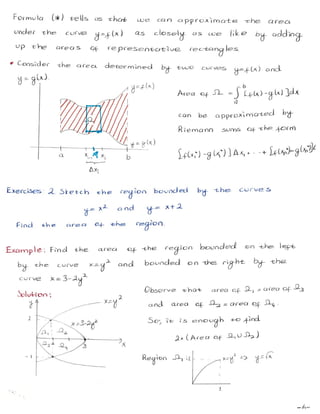 Formula (*) tells us that we can approximate the area
under the curve y=f(x) as closely as we like by adding
up the areas of representative rectangles
• Consider the area determined by two curves y=f(x) and
y=g(x).
y=f(x)
Area of Ω = ∫ₐᵇ [f(x)-g(x)]dx
Ω
can be approximated by
y=g(x)
Riemann sums of the form
a b
[f(x₁*)-g(x₁*)]Δx₁+...+[f(xₙ*)-g(xₙ*)]
Δxᵢ
Exercises 2 Sketch the region bounded by the curves
y=x² and y=x+2
Find the area of the region.
Example: Find the area of the region bounded on the left
by the curve x=y² and bounded on the right by the
curve x=3-2y²
Solution:
Observe that area of Ω₁ = area of Ω₃
y x=y²
and area of Ω₂ = area of Ω₄
1 x=3-2y²
So, it is enough to find
Ω₁ Ω₂
2x(Area of Ω₁∪Ω₂)
Ω₃ Ω₄ 3 x
-1
Region Ω₁ is x=y² ⇒ y=√x
1